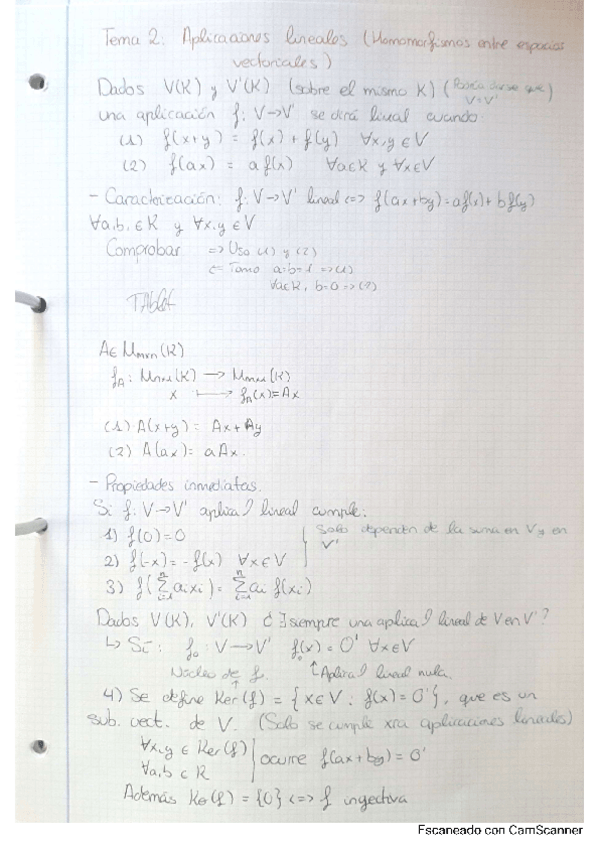 Tema 2: Aplicaciones lineales (Homomorfismos entre espacios
vectoriales)
Dados V(K) y V'(K) (sobre el mismo K) (Podría darse que
V=V')
una aplicación f: V→V' se dirá lineal cuando
(1) f(x+y) = f(x) + f(y) ∀x,y ∈ V
(2) f(ax) = a f(x) ∀a∈K y ∀x∈V
- Caracterización: f: V→V' lineal <=> f(ax+by)=af(x)+bf(y)
∀a,b, ∈ K y ∀x,y ∈ V
Comprobar => Uso (1) y (2)
<= Tomo a=b=1 => (1)
∀a∈K, b=0 => (2)
TABLET
A ∈ Mmxn(K)
fA: Mnx1(K) → Mmx1(K)
x ↦ fA(x)=Ax
(1) A(x+y) = Ax + Ay
(2) A(ax) = aAx.
- Propiedades inmediatas.
Si f: V→V' aplica) lineal cumple:
1) f(0)=0
Solo dependen de la suma en V y en
V'
2) f(-x) = -f(x) ∀x∈V
3) f(∑ⁿᵢ₌₁ aᵢxᵢ) = ∑ⁿᵢ₌₁ aᵢ f(xᵢ)
Dados V(K), V'(K) ¿∃ siempre una aplica) lineal de V en V'?
↳ Sí: f₀: V→V' f₀(x) = 0' ∀x∈V
Núcleo de f. ↑Aplica) lineal nula.
4) Se define Ker(f) = {x∈V : f(x) = 0'}, que es un
sub. vect. de V. (Solo se cumple xra aplicaciones lineales)
∀x,y ∈ Ker(f)
∀a,b ∈ K
ocurre f(ax+by) = 0'
Además Ker(f) = {0} <=> f inyectiva
Escaneado con CamScanner